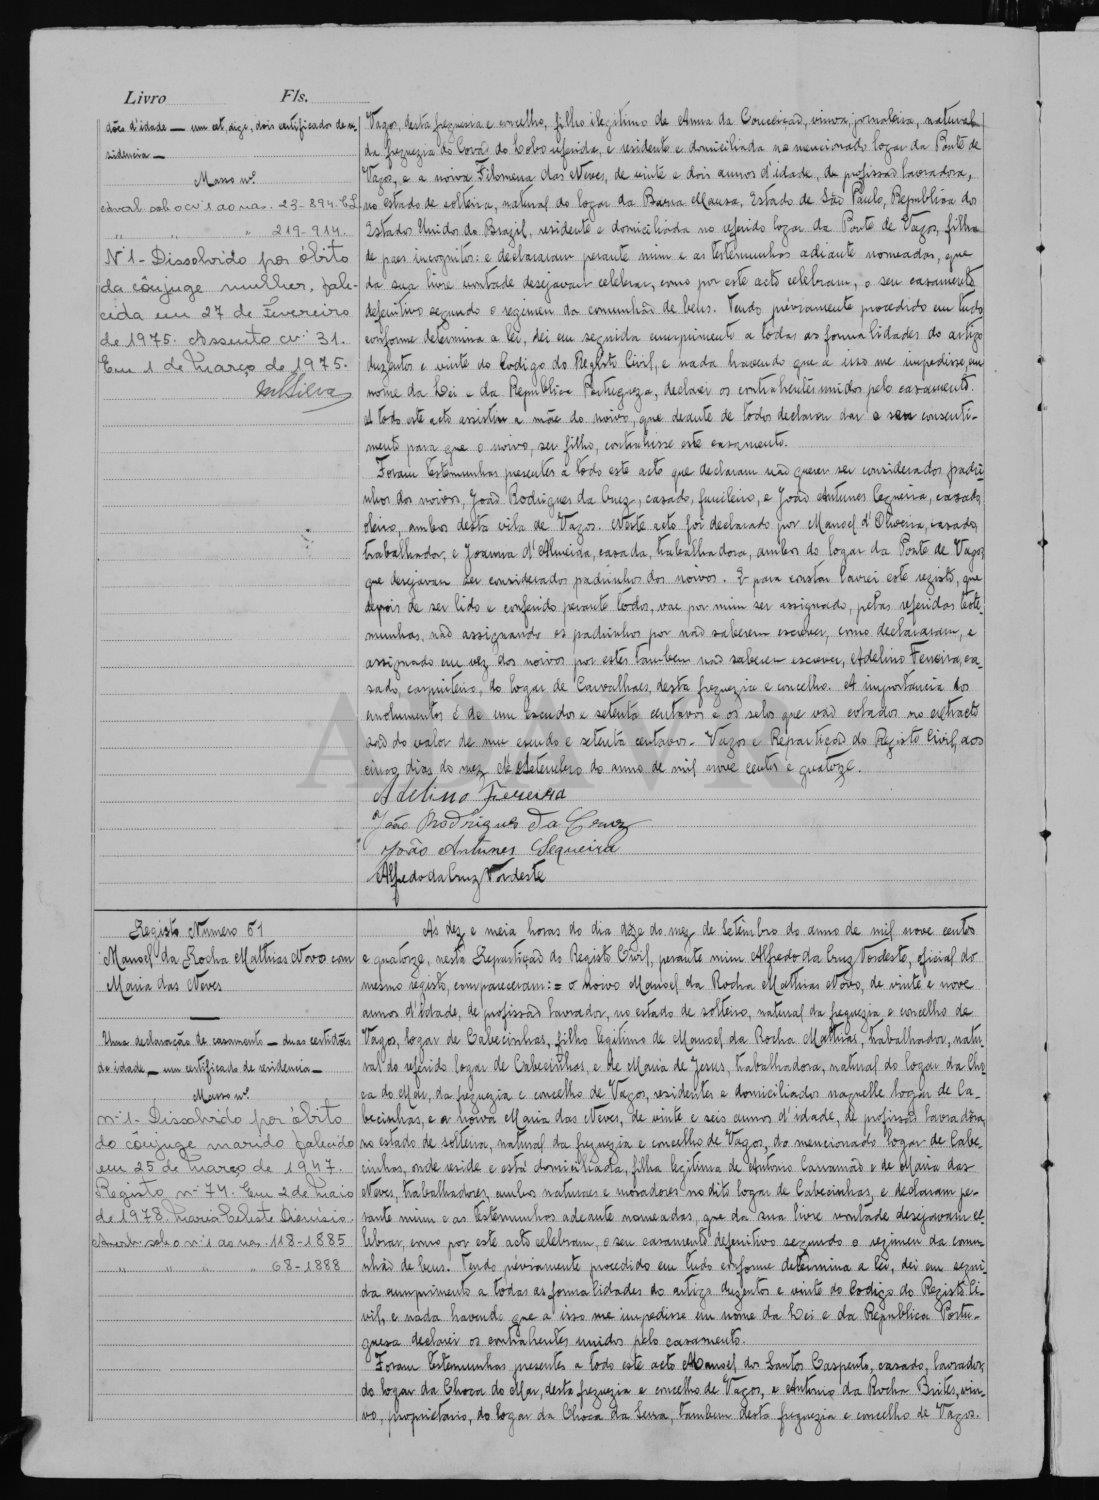 Livro Fls.
dões d'idade — um cet, digo, dois certificados de re-
sidencia —
Masso nº
averb. sob o nº 1 ao nas. 23-894.
" " " 219-914.
Nº 1 - Dissolvido por óbito
da cônjuge mulher, fale-
cida em 27 de Fevereiro
de 1975. Assento nº 31.
Em 1 de Março de 1975.
MSilva
Vagos, desta freguesia e concelho, filho ilegitimo de Anna da Conceição, viuva, jornaleira, natural
da freguezia do Covão do Lobo referida, e residente e domiciliada no mencionado logar da Ponte de
Vagos, e a noiva Filomena das Neves, de vinte e dois annos d'idade, de profissão lavradora,
no estado de solteira, natural do logar da Barra Mansa, Estado de São Paulo, Republica dos
Estados Unidos do Brazil, residente e domiciliada no referido logar da Ponte de Vagos, filha
de paes incognitos: e declararam perante mim e as testemunhas adiante nomeadas, que
da sua livre vontade desejavam celebrar, como por este acto celebram, o seu casamento
definitivo segundo o regimen da comunhão de bens. Tendo préviamente procedido em tudo
conforme determina a lei, dei em seguida cumprimento a todas as formalidades do artigo
duzentos e vinte do Codigo do Registo Civil, e nada havendo que a isso me impedisse, em
nome da Lei e da Republica Portugueza, declarei os contrahentes unidos pelo casamento.
A todo este acto assistiu a mãe do noivo, que deante de todos declarou dar o seu consenti-
mento para que o noivo, seu filho, contrahisse este casamento.
Foram testemunhas presentes a todo este acto que declararam não querer ser considerados padri-
nhos dos noivos, João Rodrigues da Cruz, casado, funileiro, e João Antunes Sequeira, casado,
oleiro, ambos desta vila de Vagos. Neste acto foi declarado por Manoel d'Oliveira, casado,
trabalhador, e Joanna d'Almeida, casada, trabalhadora, ambos do logar da Ponte de Vagos
que desejavam ser considerados padrinhos dos noivos. E para constar lavrei este registo, que
depois de ser lido e conferido perante todos, vae por mim ser assignado, pelas referidas teste-
munhas, não assignando os padrinhos por não saberem escrever, como declararam, e
assignado em vez dos noivos por estes tambem não saberem escrever, Adelino Ferreira, ca-
sado, carpinteiro, do logar de Carvalhaes, desta freguezia e concelho. A importancia dos
emolumentos é de um escudo e setenta centavos e os selos que vão colados no extracto
são do valor de um escudo e setenta centavos. Vagos e Repartição do Registo Civil, aos
cinco dias do mez de Setembro do anno de mil nove centos e quatorze.
Adelino Ferreira
João Rodrigues da Cruz
João Antunes Sequeira
Alfredo da Cruz Nordeste
Registo Numero 61
Manoel da Rocha Mathias Novo com
Maria das Neves
Uma declaração de casamento — duas certidões
de idade, — um certificado de residencia —
Masso nº
nº 1 - Dissolvido por óbito
do cônjuge marido falecido
em 25 de Março de 1947.
Registo nº 74. Em 2 de Maio
de 1978. Maria Celeste Dionísio.
Averb. sob o nº 1 ao nas. 118-1885
" " " " 68-1888
Ás dez e meia horas do dia doze do mez de Setembro do anno de mil nove centos
e quatorze, nesta Repartição do Registo Civil, perante mim Alfredo da Cruz Nordeste, oficial do
mesmo registo, compareceram: = o noivo Manoel da Rocha Mathias Novo, de vinte e nove
annos d'idade, de profissão lavrador, no estado de solteiro, natural da freguezia e concelho de
Vagos, logar de Cabecinhas, filho legitimo de Manoel da Rocha Mathias, trabalhador, natu-
ral do referido logar de Cabecinhas, e de Maria de Jesus, trabalhadora, natural do logar da Cho-
ca do Mar, da freguezia e concelho de Vagos, residentes e domiciliados naquelle logar de Ca-
becinhas, e a noiva Maria das Neves, de vinte e seis annos d'idade, de profissão lavradora,
no estado de solteira, natural da freguezia e concelho de Vagos, do mencionado logar de Cabe-
cinhas, onde reside e está domiciliada, filha legitima de Antonio Carramão e de Maria das
Neves, trabalhadores, ambos naturaes e moradores no dito logar de Cabecinhas, e declaram pe-
rante mim e as testemunhas adeante nomeadas, que da sua livre vontade desejavam ce-
lebrar, como por este acto celebram, o seu casamento definitivo segundo o regimen da comu-
nhão de bens. Tendo préviamente procedido em tudo conforme determina a lei, dei em segui-
da cumprimento a todas as formalidades do artigo duzentos e vinte do Codigo do Registo Ci-
vil, e nada havendo que a isso me impedisse em nome da Lei e da Republica Portu-
gueza declarei os contrahentes unidos pelo casamento.
Foram testemunhas presentes a todo este acto Manoel dos Santos Caspento, casado, lavrador,
do logar da Choca do Mar, desta freguezia e concelho de Vagos, e Antonio da Rocha Brites, viu-
vo, proprietario, do logar da Choca da Serra, tambem desta freguezia e concelho de Vagos.
ADAVR